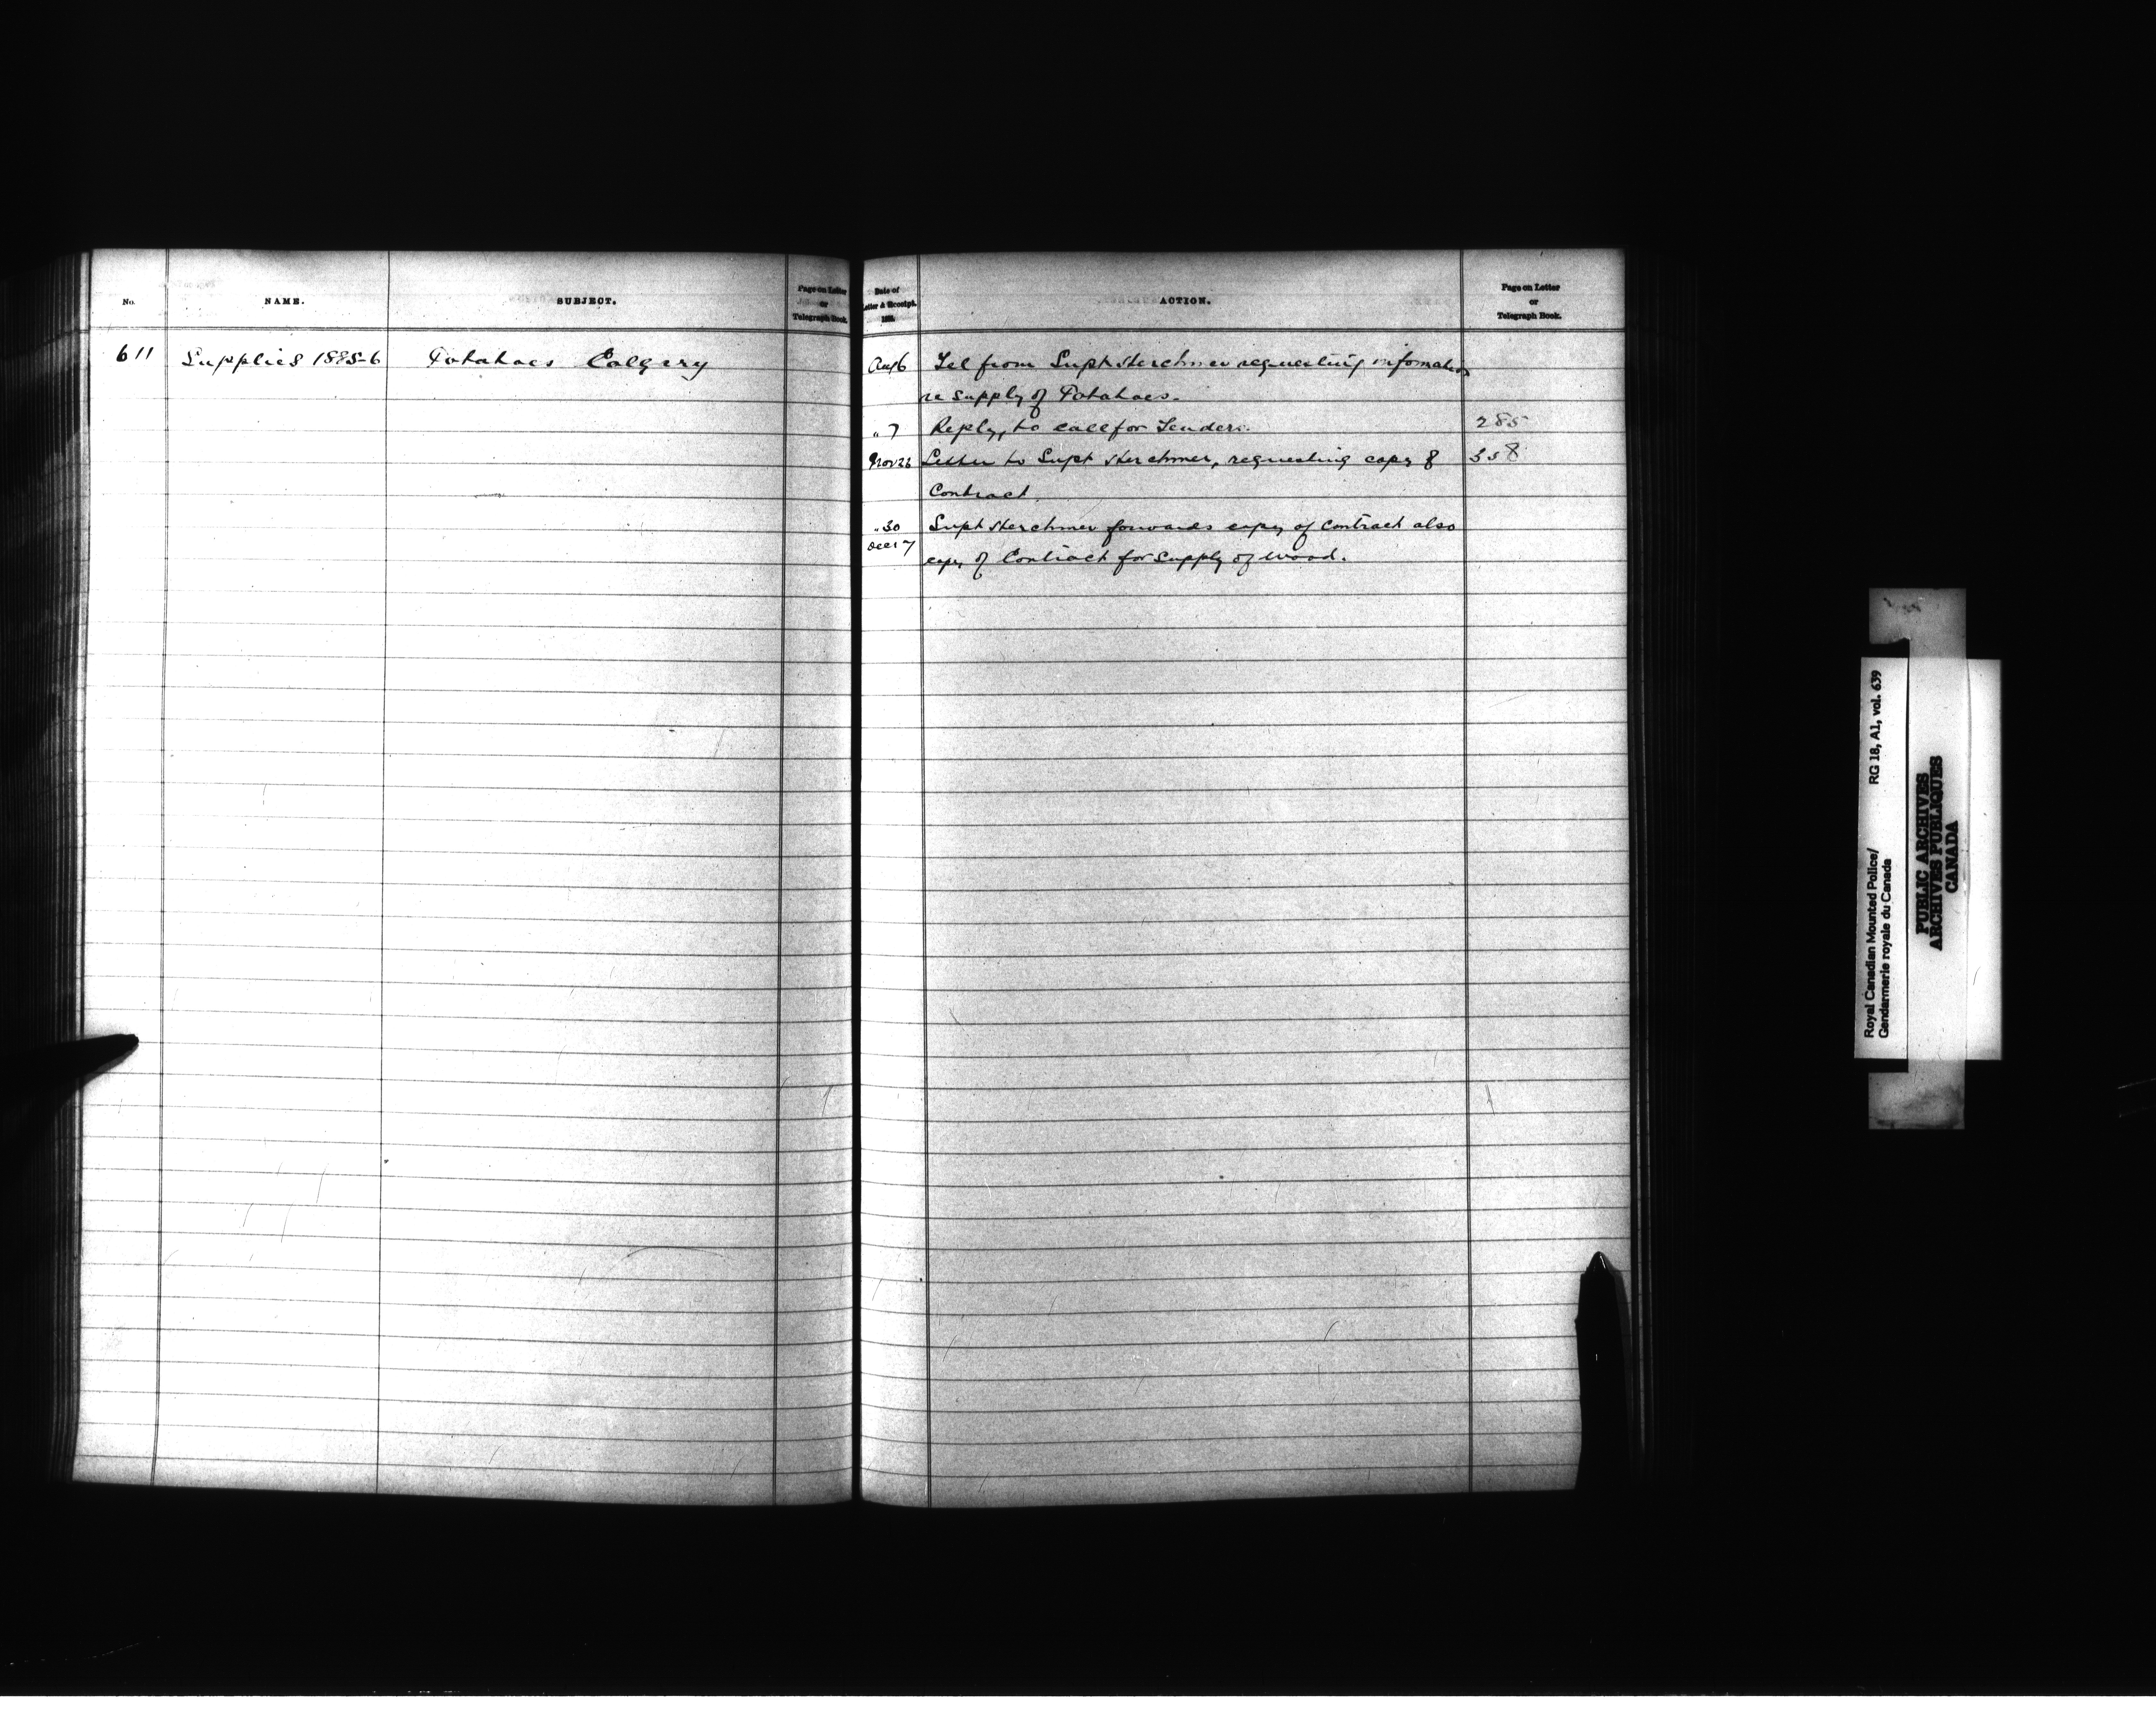 No.
NAME.
SUBJECT.
Page on Letter
or
Telegraph Book.
Date of
Letter & Receipt.
188
ACTION.
Page on Letter
or
Telegraph Book.
611 Supplies 1885-6 Potatoes Calgary
Aug 6 Tel from Supt Herchmer requesting information
re supply of Potatoes.
" 7 Reply, to call for Tenders. 285
Nov 26 Letter to Supt Herchmer, requesting copy of 358
Contract.
" 30 Supt Herchmer forwards copy of Contract also
Dec 17 copy of Contract for supply of wood.
Royal Canadian Mounted Police/ RG 18, A1, vol. 639
Gendarmerie royale du Canada
PUBLIC ARCHIVES
ARCHIVES PUBLIQUES
CANADA